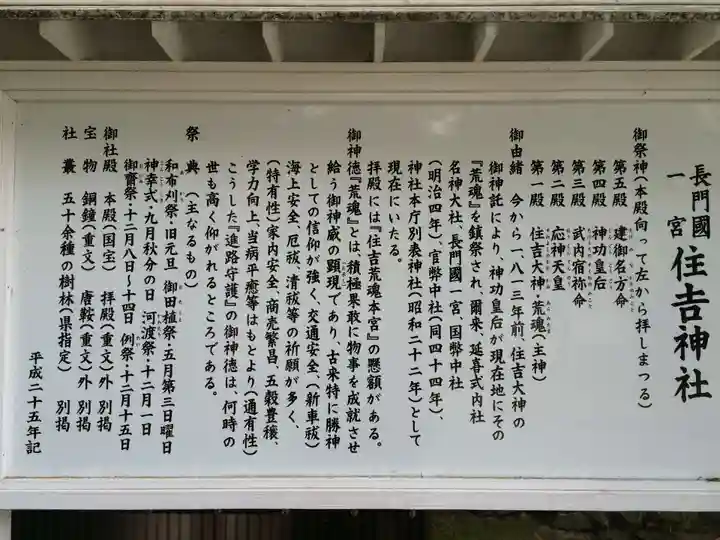 長門國
一宮 住吉神社
御祭神(本殿向って左から拝しまつる)
第五殿 建御名方命
第四殿 神功皇后
第三殿 武内宿祢命
第二殿 応神天皇
第一殿 住吉大神・荒魂(主神)
御由緒 今から一、八一三年前、住吉大神の
御神託により、神功皇后が現在地にその
『荒魂』を鎮祭され、爾来、延喜式内社
名神大社、長門國一宮、国幣中社
(明治四年)、官幣中社(同四十四年)、
神社本庁別表神社(昭和二十二年)として
現在にいたる。
拝殿には『住吉荒魂本宮』の懸額がある。
御神徳『荒魂』とは、積極果敢に物事を成就させ
給う御神威の顕現であり、古来特に勝神
としての信仰が強く、交通安全、(新車祓)
海上安全、厄祓、清祓等の祈願が多く、
(特有性)家内安全、商売繁昌、五穀豊穣、
学力向上、当病平癒等はもとより(通有性)
こうした『進路守護』の御神徳は、何時の
世も高く仰がれるところである。
祭典(主なるもの)
和布刈祭・旧元旦 御田植祭・五月第三日曜日
神幸式・九月秋分の日 河渡祭・十二月一日
御齋祭・十二月八日〜十四日 例祭・十二月十五日
御社殿 本殿(国宝) 拝殿(重文)外 別掲
宝物 銅鐘(重文) 唐鞍(重文)外 別掲
社叢 五十余種の樹林(県指定) 別掲
平成二十五年記